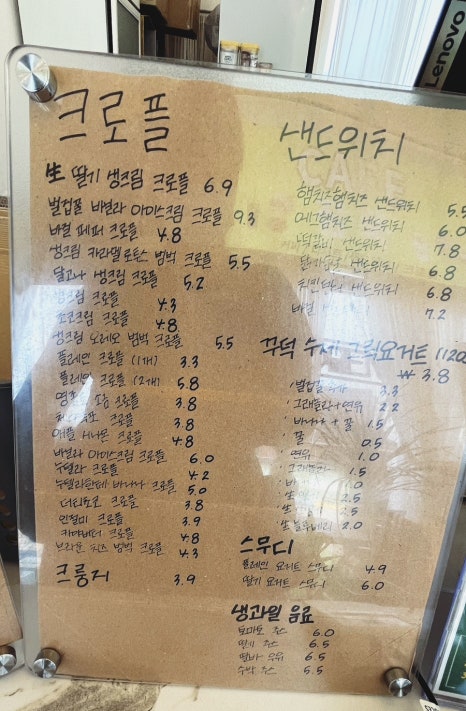 Lenovo
크로플
生 딸기 생크림 크로플 6.9
벌집꿀 바닐라 아이스크림 크로플 9.3
바질 페퍼 크로플 4.8
생크림 카라멜로투스 범벅 크로플 5.5
달고나 생크림 크로플 5.2
생크림 크로플 4.3
초코크림 크로플 4.8
생크림 오레오 범벅 크로플 5.5
플레인 크로플 (1개) 3.3
플레인 크로플 (2개) 5.8
크로플 3.8
크로플 3.8
애플 시나몬 크로플 4.8
바닐라 아이스크림 크로플 6.0
누텔라 크로플 4.2
누텔라한테 바나나 크로플 5.0
더티초코 크로플 3.8
인절미 크로플 3.9
카야버터 크로플 4.8
브라운 치즈 범벅 크로플 4.3
크룽지 3.9
샌드위치
햄치즈햄치즈 샌드위치 5.5
에그햄치즈 샌드위치 6.0
떡갈비 샌드위치 7.8
샌드위치 6.8
샌드위치 6.8
바질 7.2
꾸덕 수제 그릭요거트 (120
₩ 3.8
· 벌집꿀 추가 3.3
· 그래놀라+연유 2.2
· 바나나 + 꿀 1.5
· 꿀 0.5
· 연유 1.0
· 그래놀라 1.5
· 1.0
· 生 2.5
· 生 2.5
· 生 블루베리 2.0
스무디
플레인 요거트 스무디 4.9
딸기 요거트 스무디 6.0
생과일 음료
토마토 주스 6.0
딸기 주스 6.5
딸바 우유 6.5
수박 주스 5.5